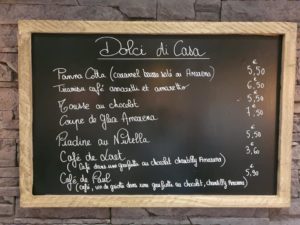 Dolci di Casa
Panna Cotta (caramel beurre salé ou Amarena) 5,50 €
Tiramisu café amaretti et amaretto 6,50 €
Mousse au chocolat 5,50
Coupe de Glace Amarena 7,50 €
Piadine au Nutella 5,50 €
Café de Last 3,60 €
Café dans une gaufrette au chocolat chantilly Amarena)
Café de Paul 5,90 €
(café, dans une gaufrette au chocolat, chantilly Amarena)